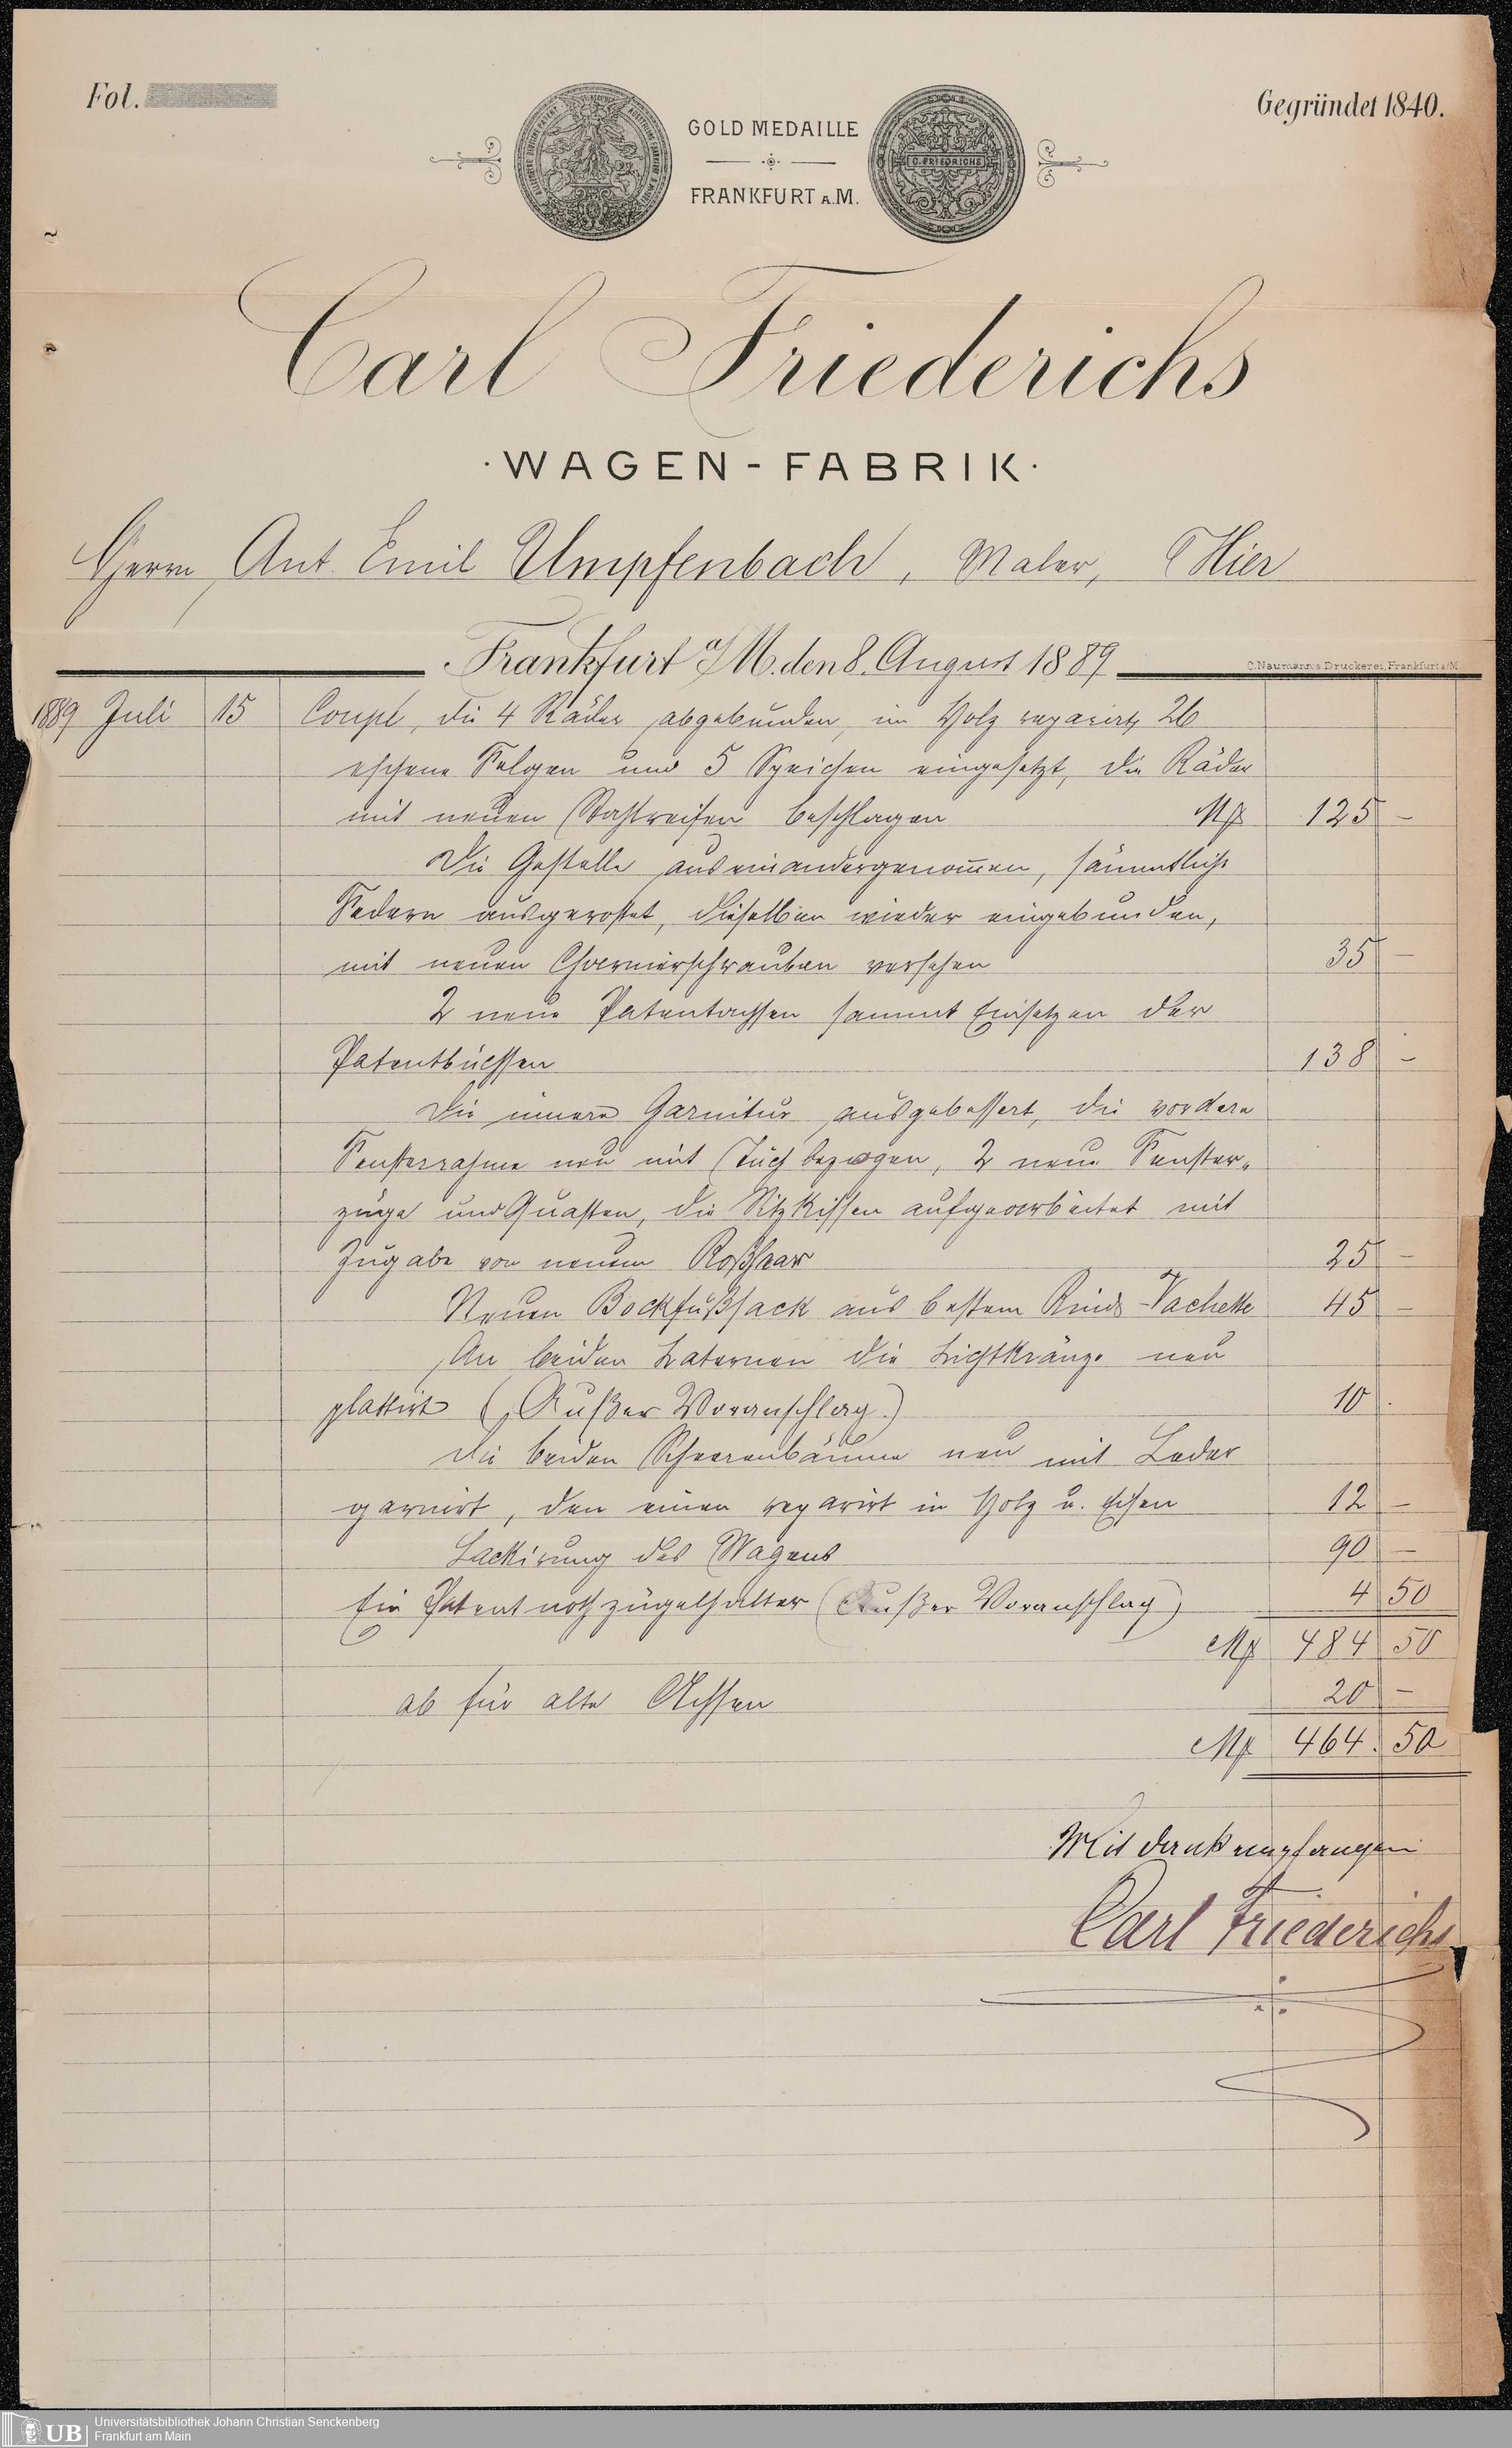 Fol.
Gegründet 1840.
GOLD MEDAILLE
FRANKFURT A.M.
C. FRIEDRICHS
Carl Friederichs
· WAGEN-FABRIK ·
Herrn Ant. Emil Umpfenbach, Maler, Hier
Frankfurt a/M. den 8. August 1889
C. Naumann's Druckerei, Frankfurt a/M.
1889 Juli 15 Coupé, die 4 Räder abgebunden, im Holz reparirt, 26
eschene Felgen und 5 Speichen eingesetzt, die Räder
mit neuen Stahlreifen beschlagen Mk 125 –
Die Gestelle auseinandergenom̄en, sämmtliche
Federn ausgerostet, dieselben wieder eingebunden,
mit neuen Charnierschrauben versehen 35 –
2 neue Patentachsen sammt Einsetzen der
Patentbüchsen 138 –
Die innere Garnitur ausgebessert, die vordere
Fensterrahme neu mit Tuch bezogen, 2 neue Fenster-
züge und Quasten, die Sitzkissen aufgearbeitet mit
Zugabe von neuem Roßhaar 25 –
Neuen Bockfußsack aus bestem Rinds-Vachette 45 –
An beiden Laternen die Lichtkränze neu
plattirt (Außer Voranschlag.) 10 .
Die beiden Scheerenbäume neu mit Leder
garnirt, den einen reparirt in Holz u. Eisen 12 –
Lackirung des Wagens 90 –
Ein Patentnothzügelhalter (Außer Voranschlag) 4 50
Mk 484 50
ab für alte Achsen 20 –
Mk 464. 50
Mit Dank empfangen
Carl Friederichs
UB Universitätsbibliothek Johann Christian Senckenberg
Frankfurt am Main